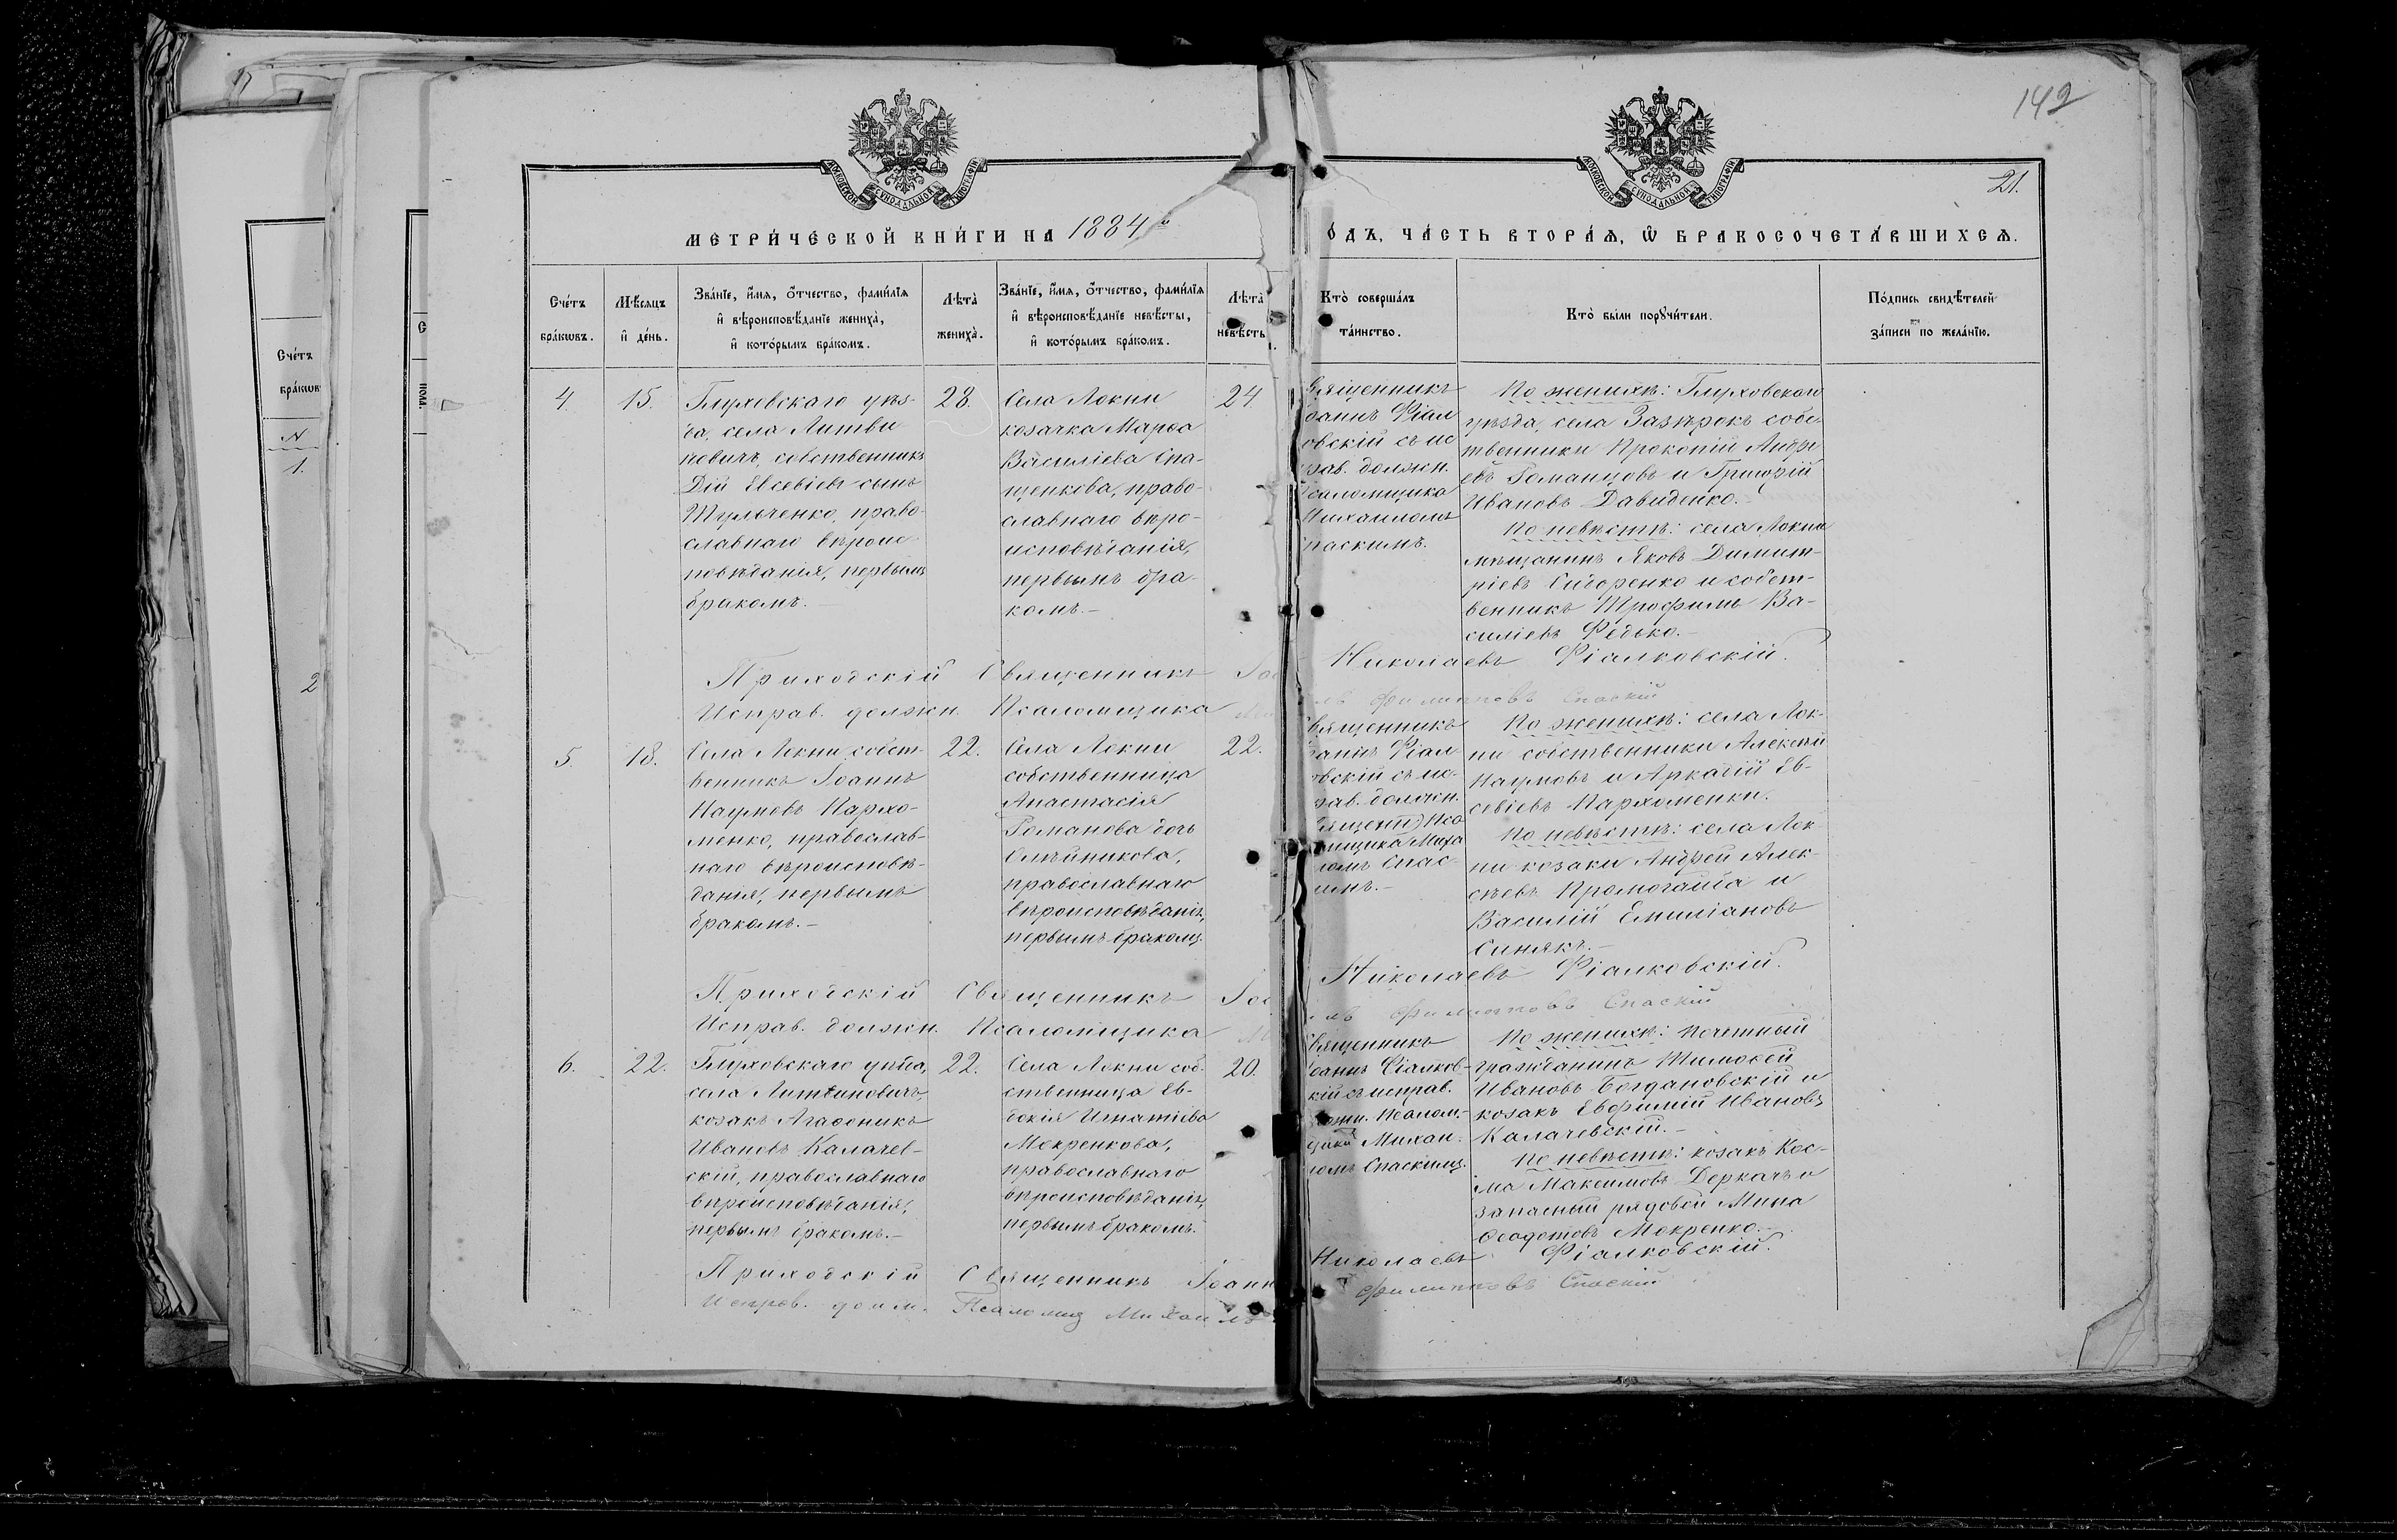 142
МОСКОВСКОЙ СѴНОДАЛЬНОЙ ТИПОГРАФІИ
МОСКОВСКОЙ СѴНОДАЛЬНОЙ ТИПОГРАФІИ
21.
МЕТРИ́ЧЕСКОЙ КНИ́ГИ НА 1884
ОДЪ, ЧА́СТЬ ВТОРА́Я, Ѡ҆ БРАКОСОЧЕТА́ВШИХСЯ.
Сче́тъ
бра́кѡвъ.
Мѣ́сяцъ
и҆ де́нь.
Зва́нїе, и҆́мя, ѻ҆́тчество, фами́лїя
и҆ вѣроисповѣ́данїе жениха̀,
и҆ кото́рымъ бра́комъ.
Лѣ́та
жениха̀.
Зва́нїе, и҆́мя, ѻ҆́тчество, фами́лїя
и҆ вѣроисповѣ́данїе невѣ́сты,
и҆ кото́рымъ бра́комъ.
Лѣ́та
невѣ́сты.
Кто̀ соверша́лъ
та́инство.
Кто̀ бы́ли порꙋчи́тели.
По́дпись свидѣ́телей
за́писи по жела́нїю.
4.
15.
Глуховскаго уѣз-
да, села Литви
новичъ, собственникъ
Дій Евсевіевъ сынъ
Шульченко, право-
славнаго вѣроис-
повѣданія, первымъ
бракомъ.—
28.
Села Локни
козачка Марѳа
Василіева Спа-
щенкова, право-
славнаго вѣро-
исповѣданія,
первымъ бра-
комъ.—
24
Священникъ
оаннъ Фіал
овскій съ ис
рав. должн.
саломщика
Михаиломъ
Спаскимъ.
По женихѣ: Глуховскаго
уѣзда, села Зазѣрокъ собс-
твенники Прокопій Андре
евъ Романцовъ и Григорій
Ивановъ Давиденко.—
По невѣстѣ: села Локни
мѣщанинъ Яковъ Димит-
ріевъ Сидоренко и собст-
венникъ Трофимъ Ва-
силіевъ Федько.—
Приходскій Священникъ Іоа
Николаевъ Фіалковскій.
Исправ. должн. Псаломщика
Филипповъ Спаскій
5.
18.
Села Локни собст-
венникъ Іоаннъ
Наумовъ Пархо-
менко, православ-
наго вѣроисповѣ-
данія, первымъ
бракомъ.—
22.
Села Локни
собственница
Анастасія
Романова дочь
Олѣйникова,
православнаго
вѣроисповѣданія,
первымъ бракомъ.
22.
Священникъ
оаннъ Фіал
овскій съ ис-
рав. должн.
Пса
мщика Миха
ломъ Спас-
имъ.—
По женихѣ: села Лок-
ни собственники Алексѣй
Наумовъ и Аркадій Ев-
севіевъ Пархоменки.
По невѣстѣ: села Лок
ни козаки Андрей Алек-
сѣевъ Промогайба и
Василій Емиліановъ
Синякъ.—
Приходскій Священникъ Іоа
Николаевъ Фіалковскій.
Исправ. должн. Псаломщика
Филипповъ Спаскій
6.
22.
Глуховскаго уѣзда,
села Литвиновичъ,
козакъ Агаѳоникъ
Ивановъ Калачев-
скій, православнаго
вѣроисповѣданія,
первымъ бракомъ.—
22.
Села Локни соб-
ственница Ев-
докія Игнатіева
Мокренкова,
православнаго
вѣроисповѣданія,
первымъ бракомъ.
20.
Священникъ
оаннъ Фіалков-
кій съ исправ.
должн. Псалом-
щика Михаи-
ломъ Спаскимъ.
По женихѣ: почетный
гражданинъ Тимоѳей
Ивановъ Богдановскій и
козакъ Евфимій Ивановъ
Калачевскій.—
По невѣстѣ: козакъ Кос-
ма Максимовъ Деркачъ и
запасный рядовой Мина
Ѳеодотовъ Мокренко.—
Приходскій Священникъ Іоанн
Николаевъ Фіалковскій.
Исправ. долж. Псаломщ Михаилъ
Филипповъ Спаскій
Сче́тъ
бра́кѡв
1.
2